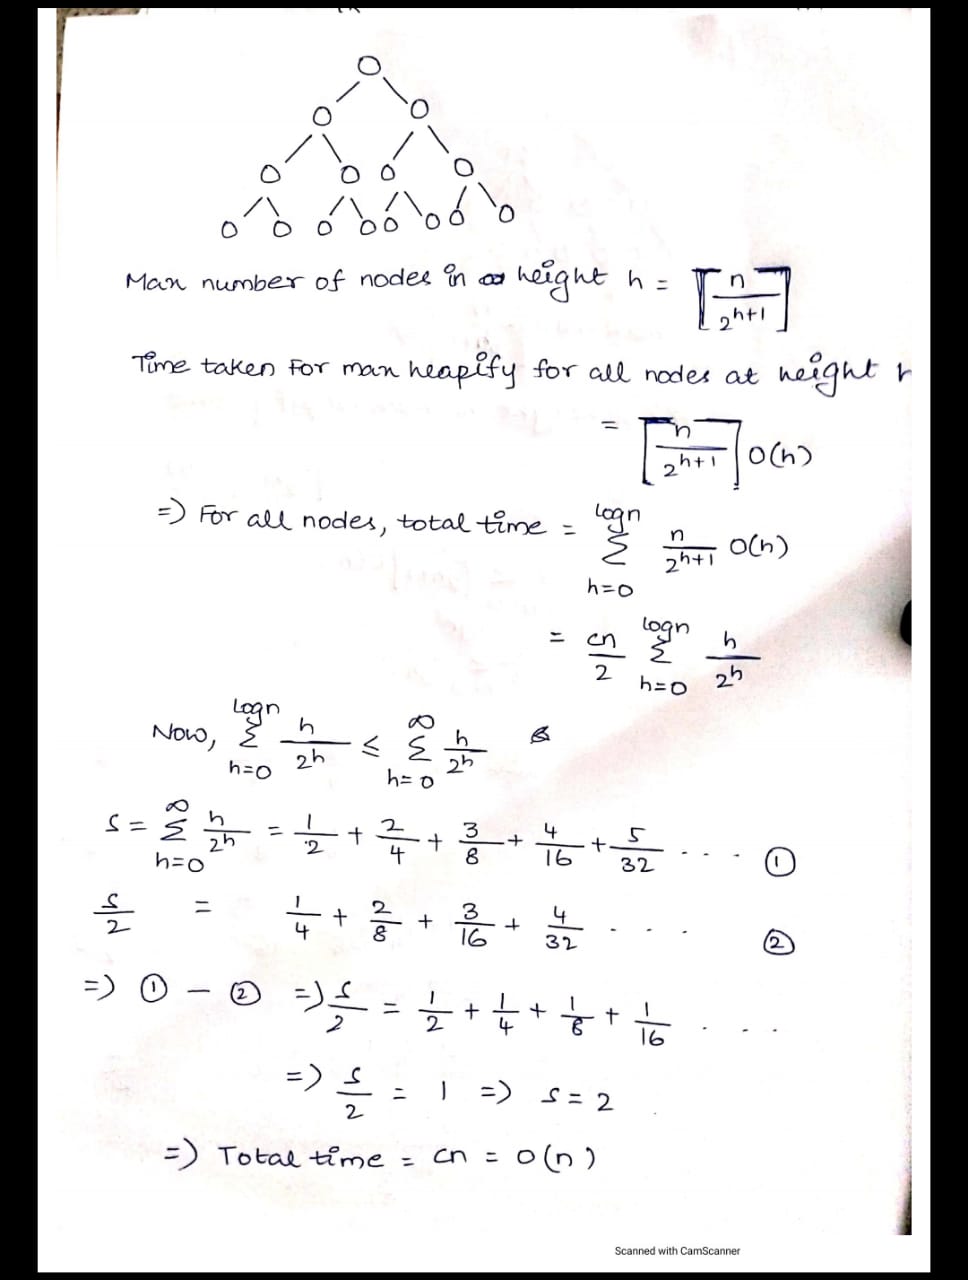 Man number of nodes in height h = ⌈n/2^(h+1)⌉
Time taken For man heapify for all nodes at height h
= ⌈n/2^(h+1)⌉ O(h)
=> For all nodes, total time = Σ_(h=0)^(logn) n/2^(h+1) O(h)
= cn/2 Σ_(h=0)^(logn) h/2^h
Now, Σ_(h=0)^(logn) h/2^h ≤ Σ_(h=0)^∞ h/2^h
S = Σ_(h=0)^∞ h/2^h = 1/2 + 2/4 + 3/8 + 4/16 + 5/32 ... ①
S/2 = 1/4 + 2/8 + 3/16 + 4/32 .... ②
=> ① - ② => S/2 = 1/2 + 1/4 + 1/8 + 1/16 ...
=> S/2 = 1 => S = 2
=> Total time = cn = O(n)
Scanned with CamScanner